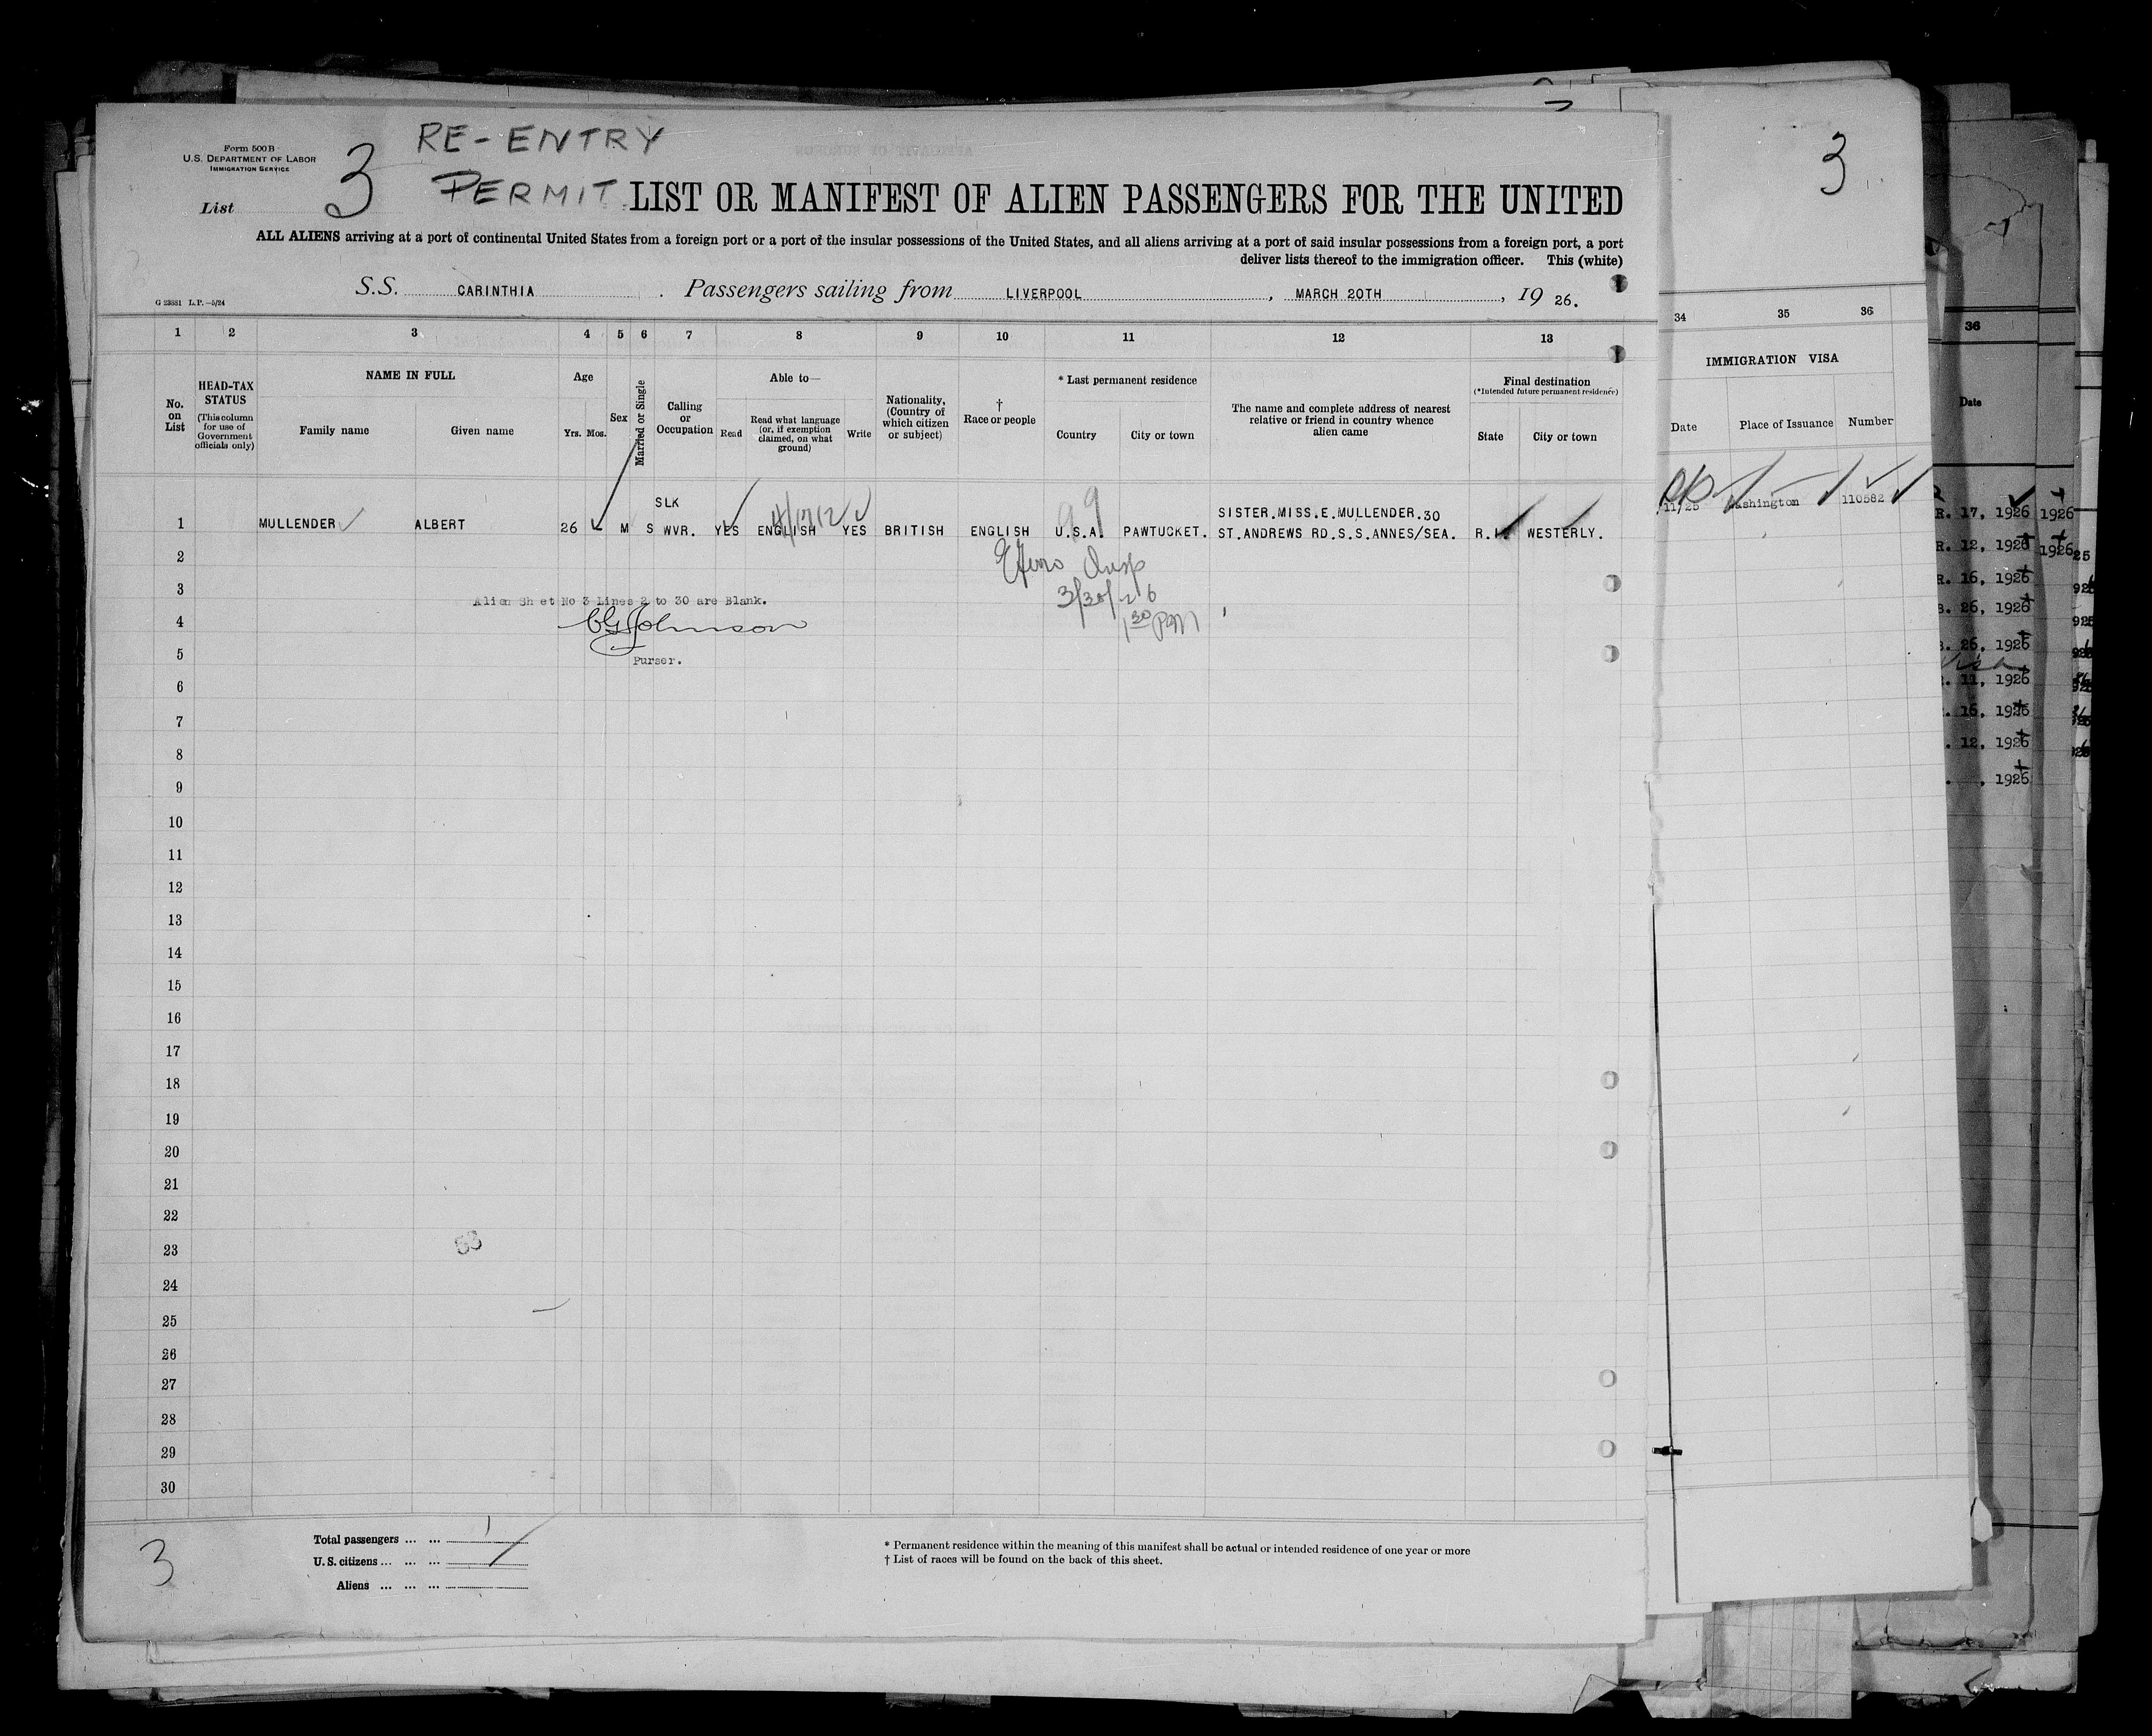 Form 500 B
U.S. DEPARTMENT OF LABOR
IMMIGRATION SERVICE
List 3
RE-ENTRY
PERMIT
LIST OR MANIFEST OF ALIEN PASSENGERS FOR THE UNITED
ALL ALIENS arriving at a port of continental United States from a foreign port or a port of the insular possessions of the United States, and all aliens arriving at a port of said insular possessions from a foreign port, a port
deliver lists thereof to the immigration officer. This (white)
G 23881 L.P.—5/24
S.S. CARINTHIA. Passengers sailing from LIVERPOOL, MARCH 20TH, 19 26.
1 2 3 4 5 6 7 8 9 10 11 12 13
No. on List
HEAD-TAX STATUS
(This column for use of Government officials only)
NAME IN FULL
Family name
Given name
Age
Yrs. Mos.
Sex
Married or Single
Calling or Occupation
Able to—
Read
Read what language (or, if exemption claimed, on what ground)
Write
Nationality, (Country of which citizen or subject)
†
Race or people
* Last permanent residence
Country
City or town
The name and complete address of nearest relative or friend in country whence alien came
Final destination
(*Intended future permanent residence)
State
City or town
1 MULLENDER ALBERT 26 M S SLK WVR. YES ENGLISH YES BRITISH ENGLISH U.S.A. PAWTUCKET. SISTER.MISS.E.MULLENDER.30 ST.ANDREWS RD.S.S.ANNES/SEA. R.I. WESTERLY.
99
2
3
Alien Sheet No 3 Lines 2 to 30 are Blank.
3/30/26
4
CGJohnson
1 30 PM
5
Purser.
6
7
8
9
10
11
12
13
14
15
16
17
18
19
20
21
22
23
24
25
26
27
28
29
30
3
Total passengers ... ... 1
U. S. citizens ... ... ...
Aliens ... ... ...
* Permanent residence within the meaning of this manifest shall be actual or intended residence of one year or more
† List of races will be found on the back of this sheet.
3
34 35 36
IMMIGRATION VISA
Date
Place of Issuance
Number
11/25 Washington 110582
36
Date
R. 17, 1926
R. 12, 1926
R. 16, 1926
B. 26, 1926
B. 26, 1926
. 11, 1926
. 16, 1926
. 12, 1926
, 1926
1926
1926